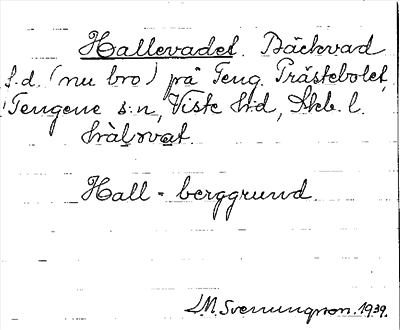 Hallevadet. Bäckvad
f.d. (nu bro) på Teng. Prästebolet,
Tengene s:n, Viste h:d, Skb. l.
hràl͡ʋvat.
Hall = berggrund.
L.M. Svenungsson. 1939.